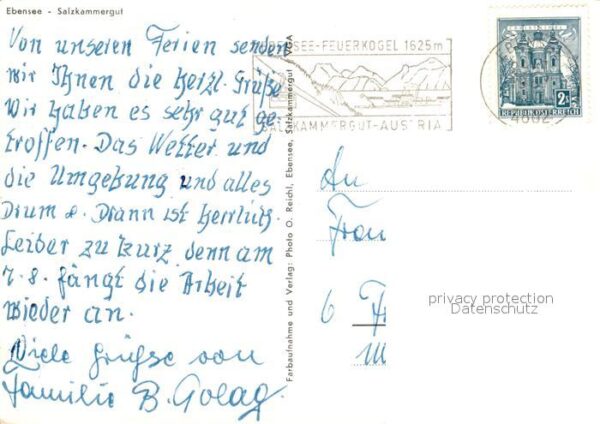 Ebensee - Salzkammergut
Von unseren Ferien senden
wir Ihnen die herzl. Grüße
Wir haben es sehr gut ge-
troffen. Das Wetter und
die Umgebung und alles
Drum & Drann ist herrlich.
Leider zu kurz denn am
7.8. fängt die Arbeit
wieder an.
Viele Grüße von
Familie B. Golag.
Farbaufnahme und Verlag: Photo O. Reichl, Ebensee, Salzkammergut VGA
SEE-FEUERKOGEL 1625m
SALZKAMMERGUT-AUSTRIA
4802
2
REPUBLIK ÖSTERREICH
An
Frau
6 F
M
privacy protection
Datenschutz